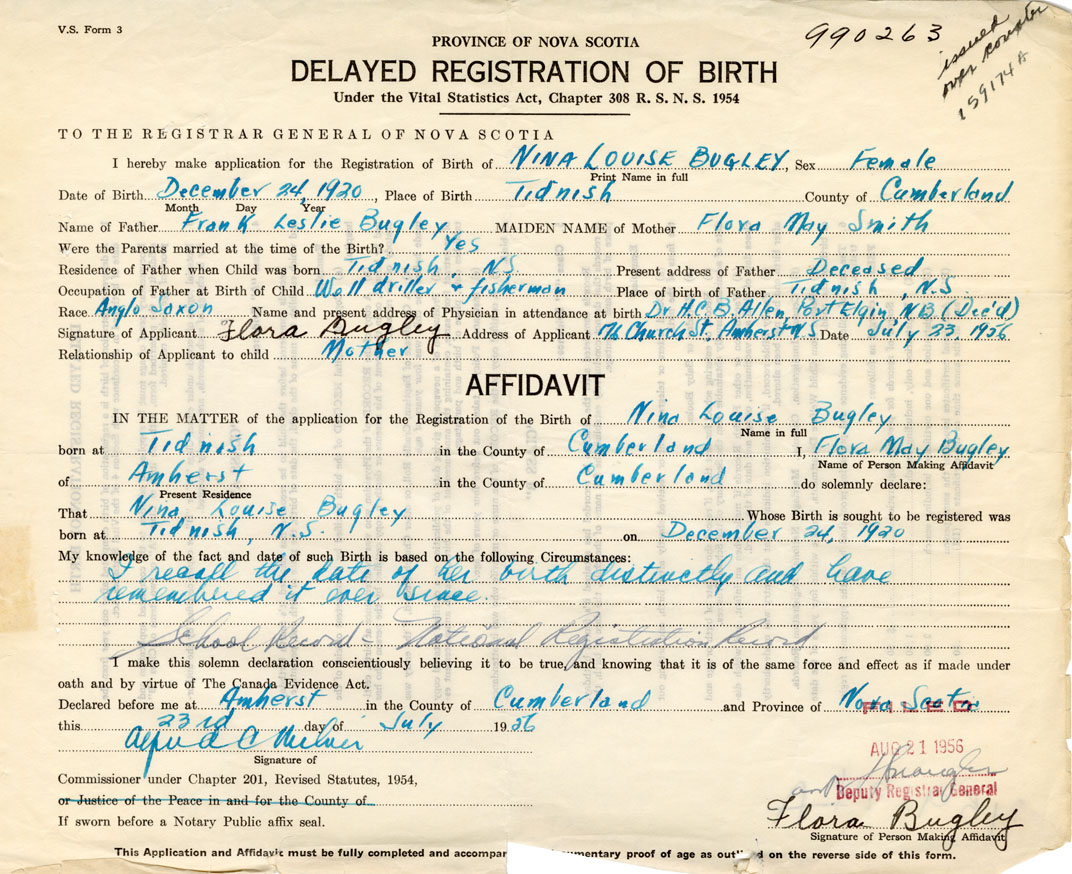 V.S. Form 3
990263
issued
over counter
159174A
PROVINCE OF NOVA SCOTIA
DELAYED REGISTRATION OF BIRTH
Under the Vital Statistics Act, Chapter 308 R. S. N. S. 1954
TO THE REGISTRAR GENERAL OF NOVA SCOTIA
I hereby make application for the Registration of Birth of NINA LOUISE BUGLEY, Sex Female
Print Name in full
Date of Birth December 24, 1920, Place of Birth Tidnish County of Cumberland
Month Day Year
Name of Father Frank Leslie Bugley MAIDEN NAME of Mother Flora May Smith
Were the Parents married at the time of the Birth? Yes
Residence of Father when Child was born Tidnish, N.S. Present address of Father Deceased
Occupation of Father at Birth of Child Well driller + fisherman Place of birth of Father Tidnish, N.S.
Race Anglo Saxon Name and present address of Physician in attendance at birth Dr. H.C.B. Allen, Port Elgin, N.B. (Dec'd)
Signature of Applicant Flora Bugley Address of Applicant Church St, Amherst N.S. Date July 23, 1956
Relationship of Applicant to child Mother
AFFIDAVIT
IN THE MATTER of the application for the Registration of the Birth of Nina Louise Bugley
Name in full
born at Tidnish in the County of Cumberland I, Flora May Bugley
Name of Person Making Affidavit
of Amherst in the County of Cumberland do solemnly declare:
Present Residence
That Nina Louise Bugley Whose Birth is sought to be registered was
born at Tidnish, N.S. on December 24, 1920
My knowledge of the fact and date of such Birth is based on the following Circumstances:
I recall the date of her birth distinctly and have
remembered it ever since.
School Record - National Registration Record
I make this solemn declaration conscientiously believing it to be true, and knowing that it is of the same force and effect as if made under
oath and by virtue of The Canada Evidence Act.
Declared before me at Amherst in the County of Cumberland and Province of Nova Scotia
FILED
this 23rd day of July 1956
AUG 21 1956
Signature of
Commissioner under Chapter 201, Revised Statutes, 1954,
Deputy Registrar General
or Justice of the Peace in and for the County of
Flora Bugley
If sworn before a Notary Public affix seal.
Signature of Person Making Affidavit
This Application and Affidavit must be fully completed and accompan umentary proof of age as outl d on the reverse side of this form.